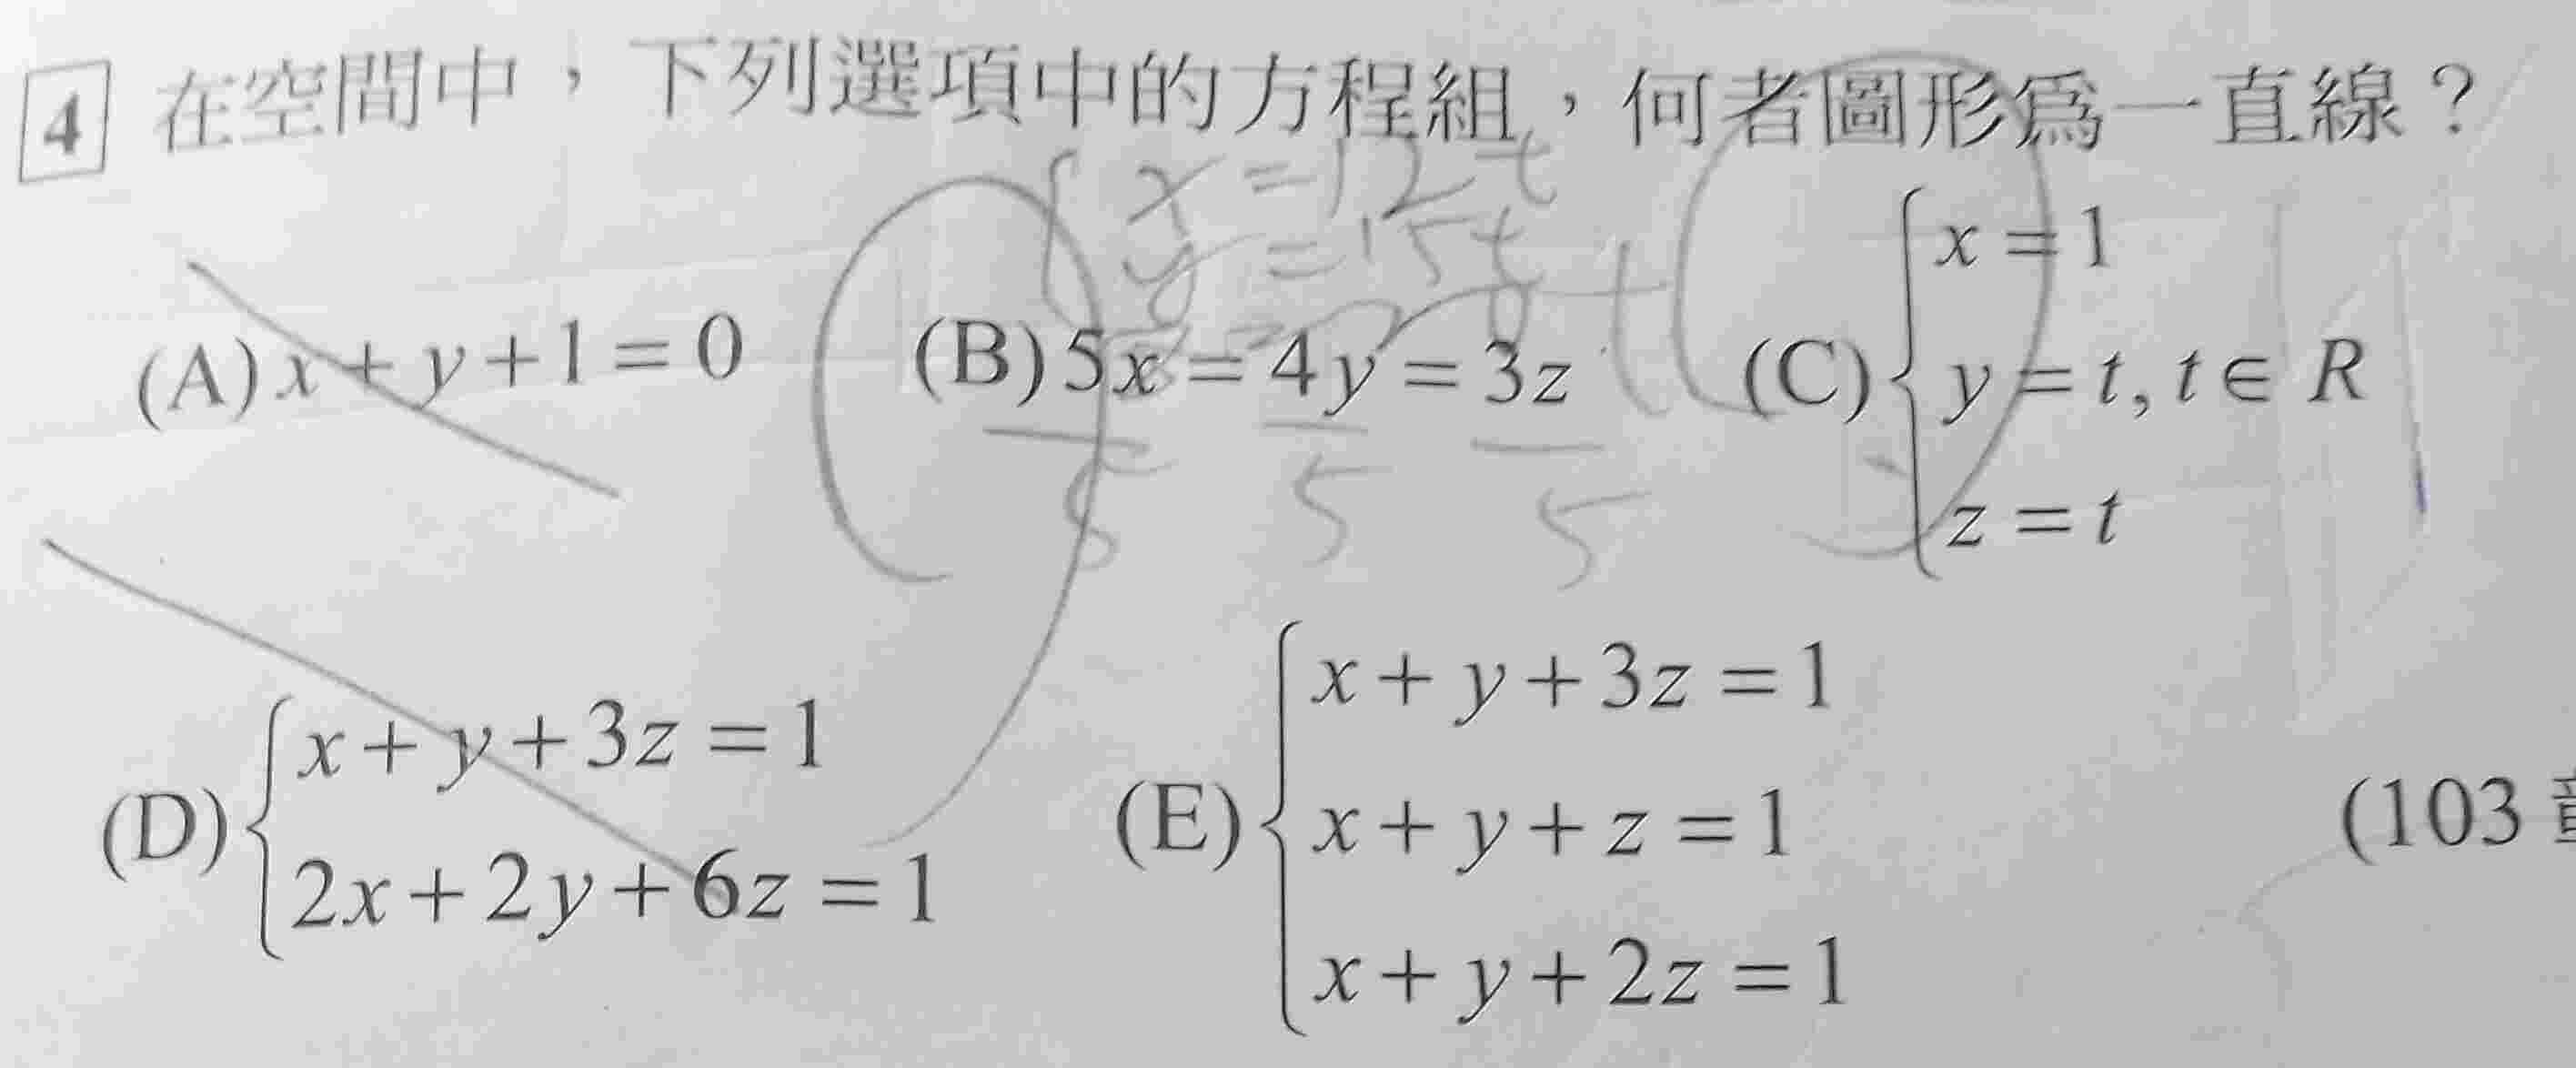 4 在空間中，下列選項中的方程組，何者圖形為一直線？
x = 12t
y = 15t
(A) x + y + 1 = 0 (B) 5x = 4y = 3z (C) { x = 1
y = t, t ∈ R
z = t
5 5
(D) { x + y + 3z = 1
2x + 2y + 6z = 1
(E) { x + y + 3z = 1
x + y + z = 1
x + y + 2z = 1
(103